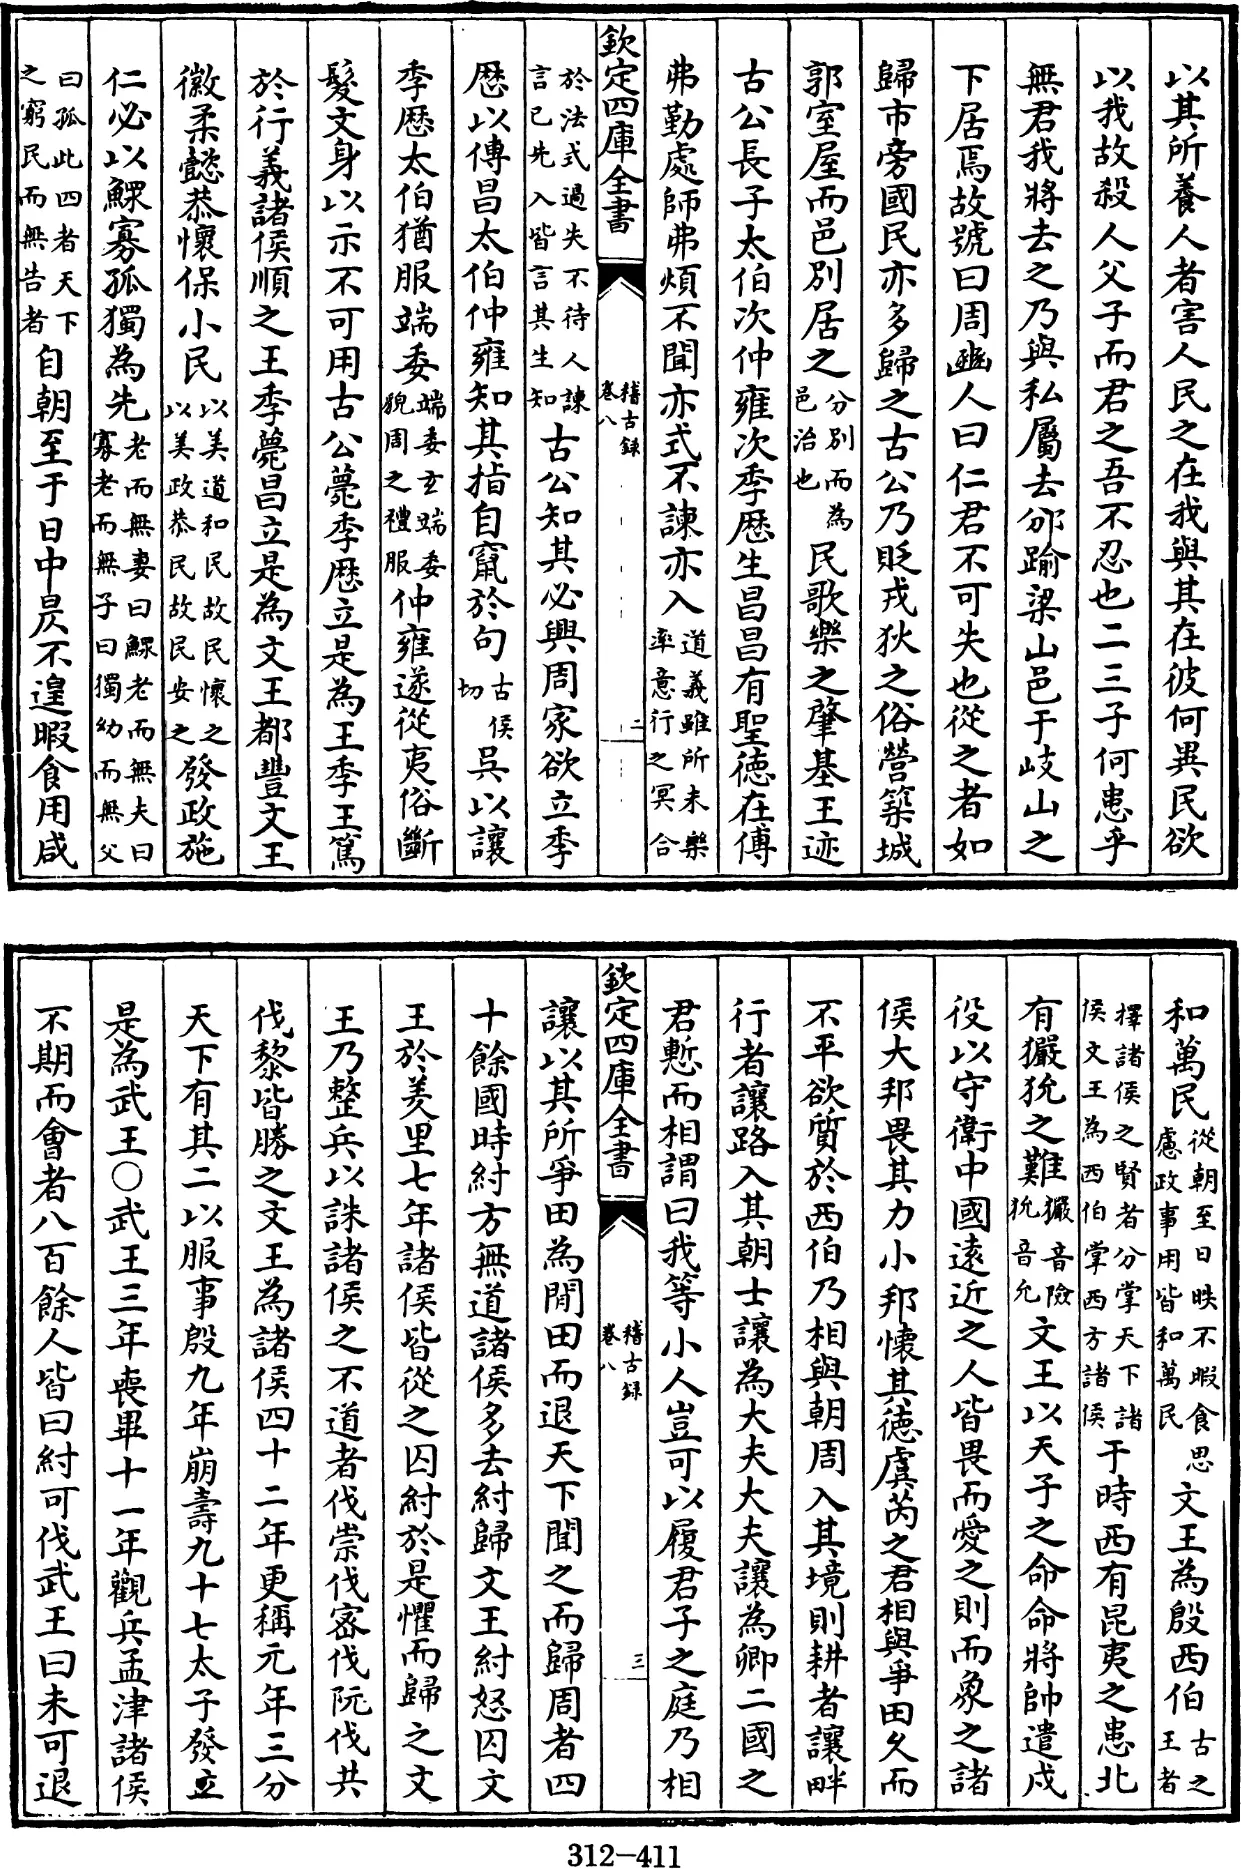 以其所養人者害人民之在我與其在彼何異民欲
以我故殺人父子而君之吾不忍也二三子何患乎
無君我將去之乃與私屬去邠踰梁山邑于岐山之
下居焉故號曰周豳人曰仁君不可失也從之者如
歸市旁國民亦多歸之古公乃貶戎狄之俗營築城
郭室屋而邑別居之分別而為邑治也民歌樂之肇基王迹
古公長子太伯次仲雍次季歴生昌昌有聖徳在傅
弗勤處師弗煩不聞亦式不諫亦入道義雖所未樂率意行之冥合
欽定四庫全書
稽古録
卷八
二
於法式過失不待人諫言已先入皆言其生知古公知其必興周家欲立季
歴以傳昌太伯仲雍知其指自竄於句古侯切吳以讓
季歴太伯猶服端委端委玄端委貌周之禮服仲雍遂從夷俗斷
髮文身以示不可用古公薨季歴立是為王季王篤
於行義諸侯順之王季薨昌立是為文王都豐文王
徽柔懿恭懷保小民以美道和民故民懷之以美政恭民故民安之發政施
仁必以鰥寡孤獨為先老而無妻曰鰥老而無夫曰寡老而無子曰獨幼而無父
曰孤此四者天下之窮民而無告者自朝至于日中昃不遑暇食用咸
和萬民從朝至日昳不暇食思慮政事用皆和萬民文王為殷西伯古之王者
擇諸侯之賢者分掌天下諸侯文王為西伯掌西方諸侯于時西有昆夷之患北
有玁狁之難玁音險狁音允文王以天子之命命將帥遣戍
役以守衛中國遠近之人皆畏而愛之則而象之諸
侯大邦畏其力小邦懐其徳虞芮之君相與爭田久而
不平欲質於西伯乃相與朝周入其境則耕者讓畔
行者讓路入其朝士讓為大夫大夫讓為卿二國之
君慙而相謂曰我等小人豈可以履君子之庭乃相
欽定四庫全書
稽古録
卷八
三
讓以其所爭田為閒田而退天下聞之而歸周者四
十餘國時紂方無道諸侯多去紂歸文王紂怒囚文
王於羑里七年諸侯皆從之囚紂於是懼而歸之文
王乃整兵以誅諸侯之不道者伐崇伐密伐阮伐共
伐黎皆勝之文王為諸侯四十二年更稱元年三分
天下有其二以服事殷九年崩壽九十七太子發立
是為武王○武王三年喪畢十一年觀兵孟津諸侯
不期而會者八百餘人皆曰紂可伐武王曰未可退
312-411